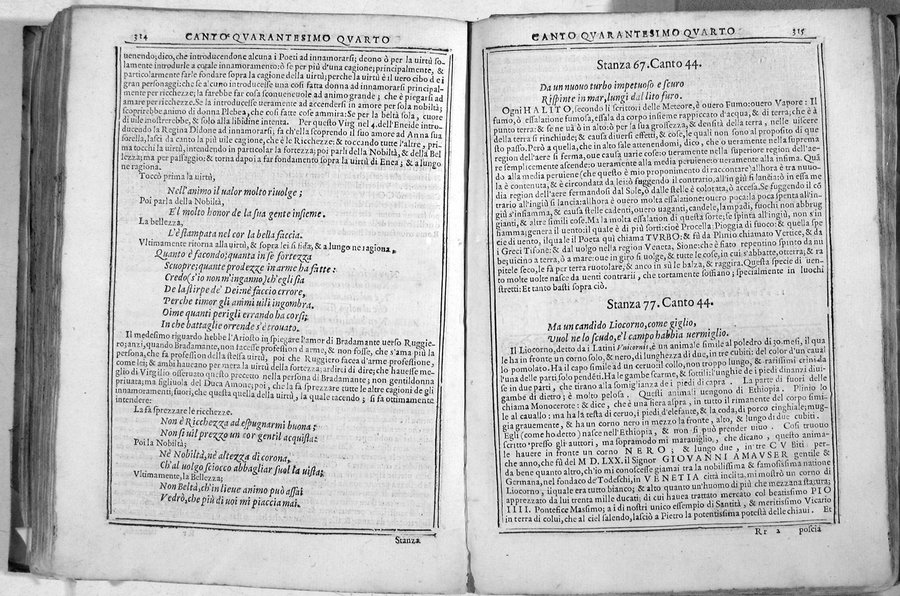 314
CANTO QVARANTESIMO QVARTO
uenendo; dico, che introducendone alcuna i Poeti ad innamorarsi; deono ò per la uirtù so-
lamente introdurle a cotale innamoramento: ò se per più d'una cagione; principalmente, &
particolarmente farle fondare sopra la cagione della uirtù; perche la uirtù è il uero cibo de i
gran personaggi: che se alcuno introducesse una cosi fatta donna ad innamorarsi principal-
mente per ricchezze; la farebbe far cosa sconueneuole ad animo grande; che è piegarsi ad
amare per ricchezze. Se la introducesse ueramente ad accendersi in amore per sola nobiltà;
scoprirebbe animo di donna Plebea, che cose fatte cose ammira: Se per la beltà sola, cuore
di uile mostrerebbe, & solo alla libidine intenta. Per questo Virg nel 4. dell'Eneide intro-
ducendo la Regina Didone ad innamorarsi, fa ch'ella scoprendo il suo amore ad Anna sua
sorella, lasci da canto la più uile cagione, che è le Ricchezze: & toccando tutte l'altre, pri-
ma tocchi la uirtù, intendendo in particolar la fortezza; poi parli della Nobiltà, & della Bel
lezza; ma per passaggio: & torna dapoi a far fondamento sopra la uirtù di Enea; & a lungo
ne ragiona.
Toccò prima la uirtù,
Nell'animo il ualor molto riuolge;
Poi parla della Nobiltà,
E'l molto honor de la sua gente insieme.
La bellezza,
L'è stampata nel cor la bella faccia.
Vltimamente ritorna alla uirtù, & sopra lei si fida, & a lungo ne ragiona.
Quanto è facondo; quanta in sè fortezza
Scuopre; quante prodezze in arme ha fatte:
Credo (s'io non m'inganno) ch'egli sia
De la stirpe de' Dei: nè faccio errore,
Perche timor gli animi uili ingombra.
Oime quanti perigli errando ha corsi;
In che battaglie orrende s'è trouato.
Il medesimo riguardo hebbe l'Ariosto in spiegare l'amor di Bradamante uerso Ruggie-
ro; anzi, quando Bradamante, non facesse profession d'arme, & non fosse, che s'ama più la
persona, che fa profession della stessa uirtù, poi che Ruggiero faceva d'arme professione,
come lei; & ambi haueano per mira la uirtù della fortezza; ardirei di dire; che hauesse me-
glio di Virgilio osseruato questo precetto nella persona di Bradamante; non gentildonna
priuata; ma figliuola del Duca Amone; poi, che la fa sprezzare tutte le altre cagioni de gli
innamoramenti, fuori, che questa quella della uirtù, la quale tacendo; si fa ottimamente
intendere:
La fa sprezzare le ricchezze.
Non è Ricchezza ad espugnarmi buona;
Non sì uil prezzo un cor gentil acquista:
Poi la Nobiltà;
Nè Nobiltà, nè altezza di corona,
Ch'al uolgo sciocco abbagliar suol la uista;
Vltimamente, la Bellezza;
Non Beltà, ch'in lieue animo può assai
Vedrò, che più di uoi mi piaccia mai.
Stanza
CANTO QVARANTESIMO QVARTO
315
Stanza 67. Canto 44.
Da un nuouo turbo impetuoso e scuro
Rispinte in mar, lungi dal lito furo.
Ogni HALITO, secondo li scrittori delle Meteore, è ouero Fumo: ouero Vapore: Il
fumo, ò essalatione fumosa, essala da corpo insieme rappiccato d'acqua, & di terra; che è à
punto terra: & se ne uà ò in alto: ò per la sua grossezza, & densità della terra, nelle uiscere
della terra si rinchiude; & causa diuersi effetti, & cose, le quali non sono al proposito di que
sto passo. Però a quella, che in alto sale attenendomi, dico, che o ueramente nella suprema
region dell'aere si ferma, oue causa uarie cose: o ueramente nella superiore region dell'ae-
re semplicemente ascende: o ueramente alla media peruiene: o ueramente alla infima. Quà
do alla media peruiene (che questo è mio proponimento di raccontare) all'hora è tra nuuo-
la è contenuta, & è circondata da lei: ò fuggendo il contrario, all'in giù si lancia: ò in essa me
dia region dell'aere fermandosi dal Sole, ò dalle stelle è colorata, ò accesa. Se fuggendo il cō
trario all'ingiù si lancia: allhora è ouero molta essalatione: ouero poca: la poca spenta all'in-
giù s'infiamma, & causa stelle cadenti, ouero uaganti, candele, lampadi, fuochi non abbrug
gianti, & altre simili cose. Ma la molta essalation di questa sorte; se spinta all'ingiù, non s'in
fiamma; genera il uento: il quale è di più sorti: cioè Procella: Pioggia di fuoco: & quella spe
cie di uento, il quale il Poeta quì chiama TVRBO: & fù da Plinio chiamato Vertice, & da
i Greci Tifone: & dal uolgo nella region Veneta, Sione: che è fiato repentino spinto da nu
be; uicino a terra, ò a mare: oue in giro si uolge, & tutte le cose, in cui s'abbatte, otterra, & ra
pite le seco, le fa per terra ruotolare, & anco in sù le balza, & raggira. Questa specie di uen-
to molte uolte nasce da uenti contrarii, che tortamente soffiano; specialmente in luochi
stretti: Et tanto basti sopra ciò.
Stanza 77. Canto 44.
Ma un candido Liocorno, come giglio,
Vuol ne lo scudo, e'l campo habbia uermiglio.
Il Liocorno, detto da i Latini Vnicornis, è un animale simile al poledro di 30. mesi, il qua
le ha in fronte un corno solo, & nero, di lunghezza di due, in tre cubiti: del color d'un caual
lo pomolato. Ha il capo simile ad un ceruo: il collo, non troppo lungo, & rarissimi crini da
l'una delle parti solo pendēti. Ha le gambe scarne, & sottili: l'unghie de i piedi dinanzi diui-
se in due parti, che tirano alla somiglianza de i piedi di capra. La parte di fuori delle
gambe di dietro; è molto pelosa. Questi animali uengono di Ethiopia. Plinio lo
chiama Monocerote: & dice, che è una fiera aspra, in tutto il rimanente del corpo simi-
le al cauallo: ma ha la testa di ceruo, i piedi d'elefante, & la coda, di porco cinghiale; mug-
gia grauemente, & ha un corno nero in mezzo la fronte, alto, & lungo di due cubiti.
Egli (come ho detto) nasce nell'Ethiopia, & non si può prender uiuo. Cosi truouo
scritto presso gli auttori, ma sopramodo mi marauiglio, che dicano, questo anima-
le hauere in fronte un corno NERO, & lungo due, in tre CVBITI per-
che anno, che fù del M D. LXX. il Signor GIOVANNI AMAVSER gentile &
da bene quanto altro, ch'io mi conoscesse giamai tra la nobilissima & famosissima natione
Germana, nel fondaco de'Todeschi, in VENETIA città inclita, mi mostrò un corno di
Liocorno, il quale era tutto bianco; & alto quanto un'huomo di più che mezzana statura;
apprezzato da lui trenta mille ducati; di cui hauea trattato mercato col beatissimo PIO
IIII. Pontefice Massimo; a i dì nostri unico essempio di Santità, & meritissimo Vicario
in terra di colui, che al ciel salendo, lasciò a Pietro la potentissima potestà delle chiaui. Et
Rr 2 poscia